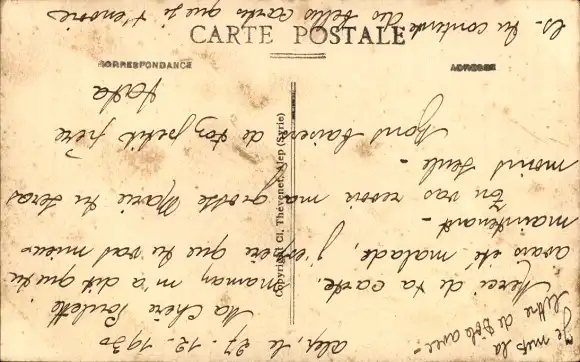 CARTE POSTALE
CORRESPONDANCE
ADRESSE
Copyright Cl. Thévenet, Alep (Syrie)
alep, le 27-12-1930
Ma Chère Paulette
Merci de ta carte. maman m'a dit que tu
avais été malade, j'espère que tu vas mieux
maintenant -
vas revoir ma grosse Marie tu seras
moins seule -
baisers de ton petit frère
Es-tu contente des belles cartes que je t'envoie
Je mets la
lettre de avec -